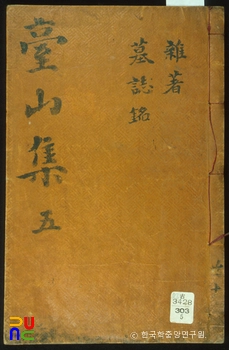 雜著
墓誌銘
臺山集 五
3428
303
한국학중앙연구원